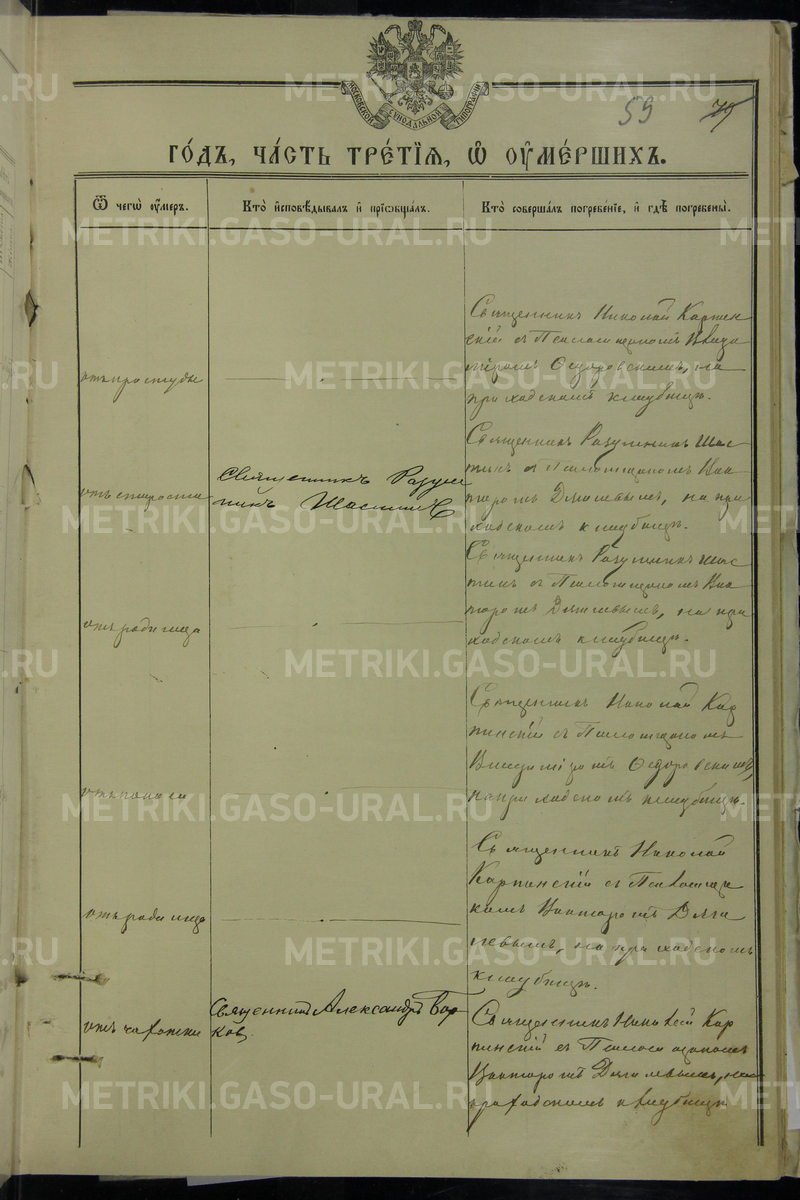 МОСКОВСКОЙ СѴНОДАЛЬНОЙ ТИПОГРАФІИ
59
79
ГО́ДЪ, ЧА́СТЬ ТРЕ́ТІѦ, Ѡ҆ ОУ҆МЕ́РШИХЪ.
Ѿ чегѡ̀ оу҆́меръ.
Кто̀ и҆сповѣ́дывалъ и҆ прїѡбща́лъ.
Кто̀ соверша́лъ погребе́нїе, и҆ гдѣ̀ погребены̀.
отъ простуды
Священникъ Николай Карпин
скій съ Псаломщикомъ Влади
міромъ Ѳедоровскимъ, на
приходскомъ кладбищѣ.
отъ старости
Священникъ Разумникъ
Шастинъ
Священникъ Разумникъ Шас
тинъ съ Псаломщикомъ Вик
торомъ, на при
ходскомъ кладбищѣ.
отъ родимца
Священникъ Разумникъ Шас
тинъ съ Псаломщикомъ Вик
торомъ, на при
ходскомъ кладбищѣ.
отъ поноса
Священникъ Николай Кар
пинскій съ Псаломщикомъ
Владиміромъ Ѳедоровскимъ,
на приходскомъ кладбищѣ.
отъ родимца
Священникъ Николай
Карпинскій съ Псаломщи
комъ Викторомъ
на приходскомъ
кладбищѣ.
отъ чахотки
Священникъ Александръ
Священникъ Николай Кар
пинскій съ Псаломщикомъ
Викторомъ, на
приходскомъ кладбищѣ
METRIKI.GASO-URAL.RU